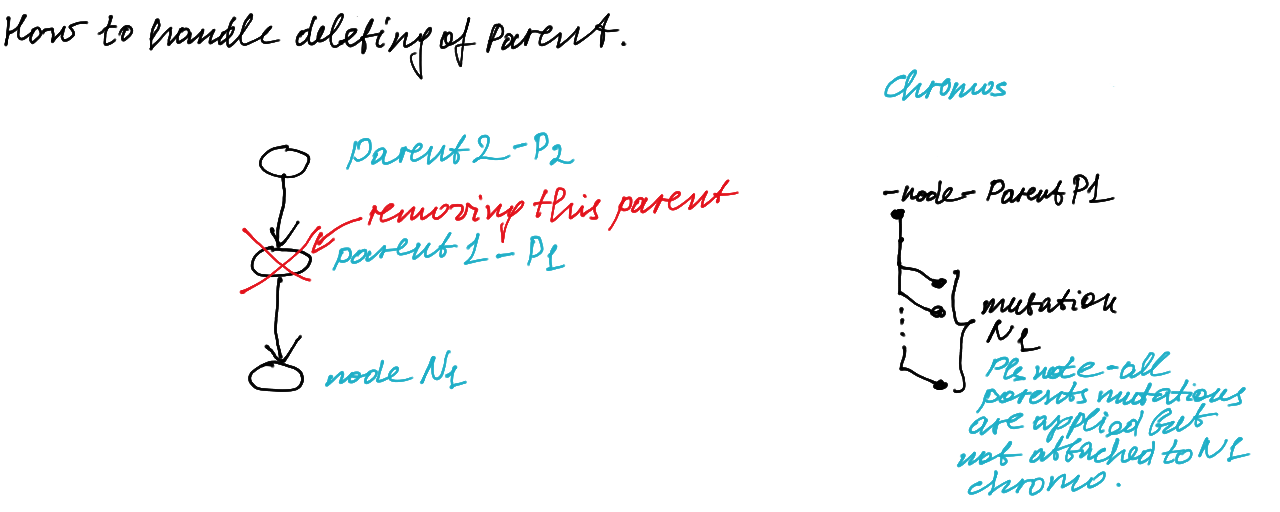 How to handle deleting of parent.
Chromos
Parent 2 - P2
removing this parent
parent 1 - P1
node N1
- node - Parent P1
mutation
N1
Pls note - all
parents mutations
are applied but
not attached to N1
chromo.